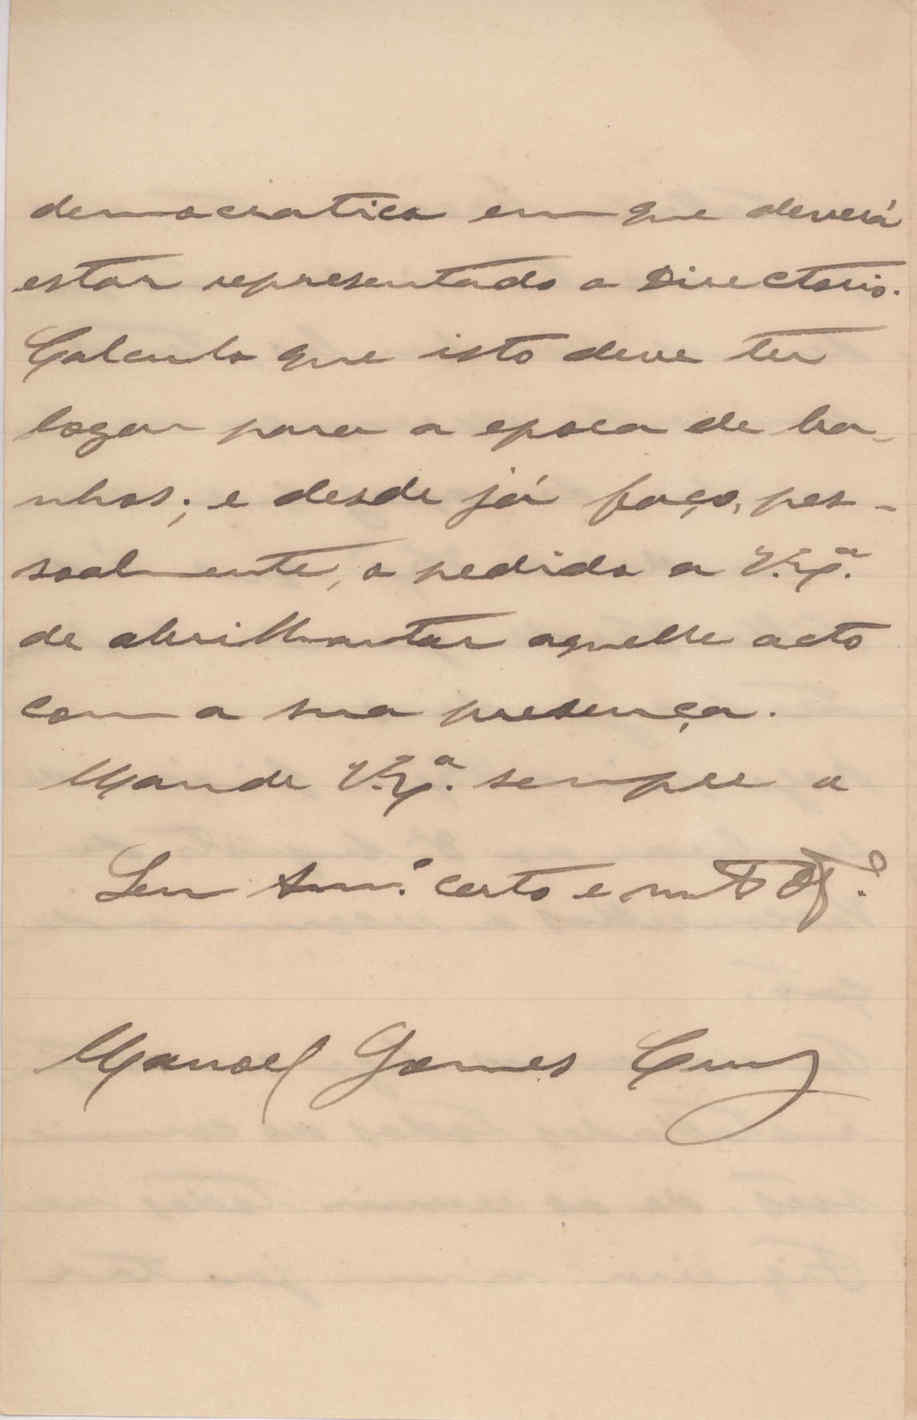 democratica em que deverá
estar representado o Directorio.
Calculo que isto deve ter
logar para a epoca de ba-
nhos; e desde já faço, pes-
soalmente, o pedido a V. Ex.ª
de abrilhantar aquelle acto
com a sua presença.
Mande V. Ex.ª sempre o
Seu Am.º certo e mt.º
Manoel Gomes Cruz